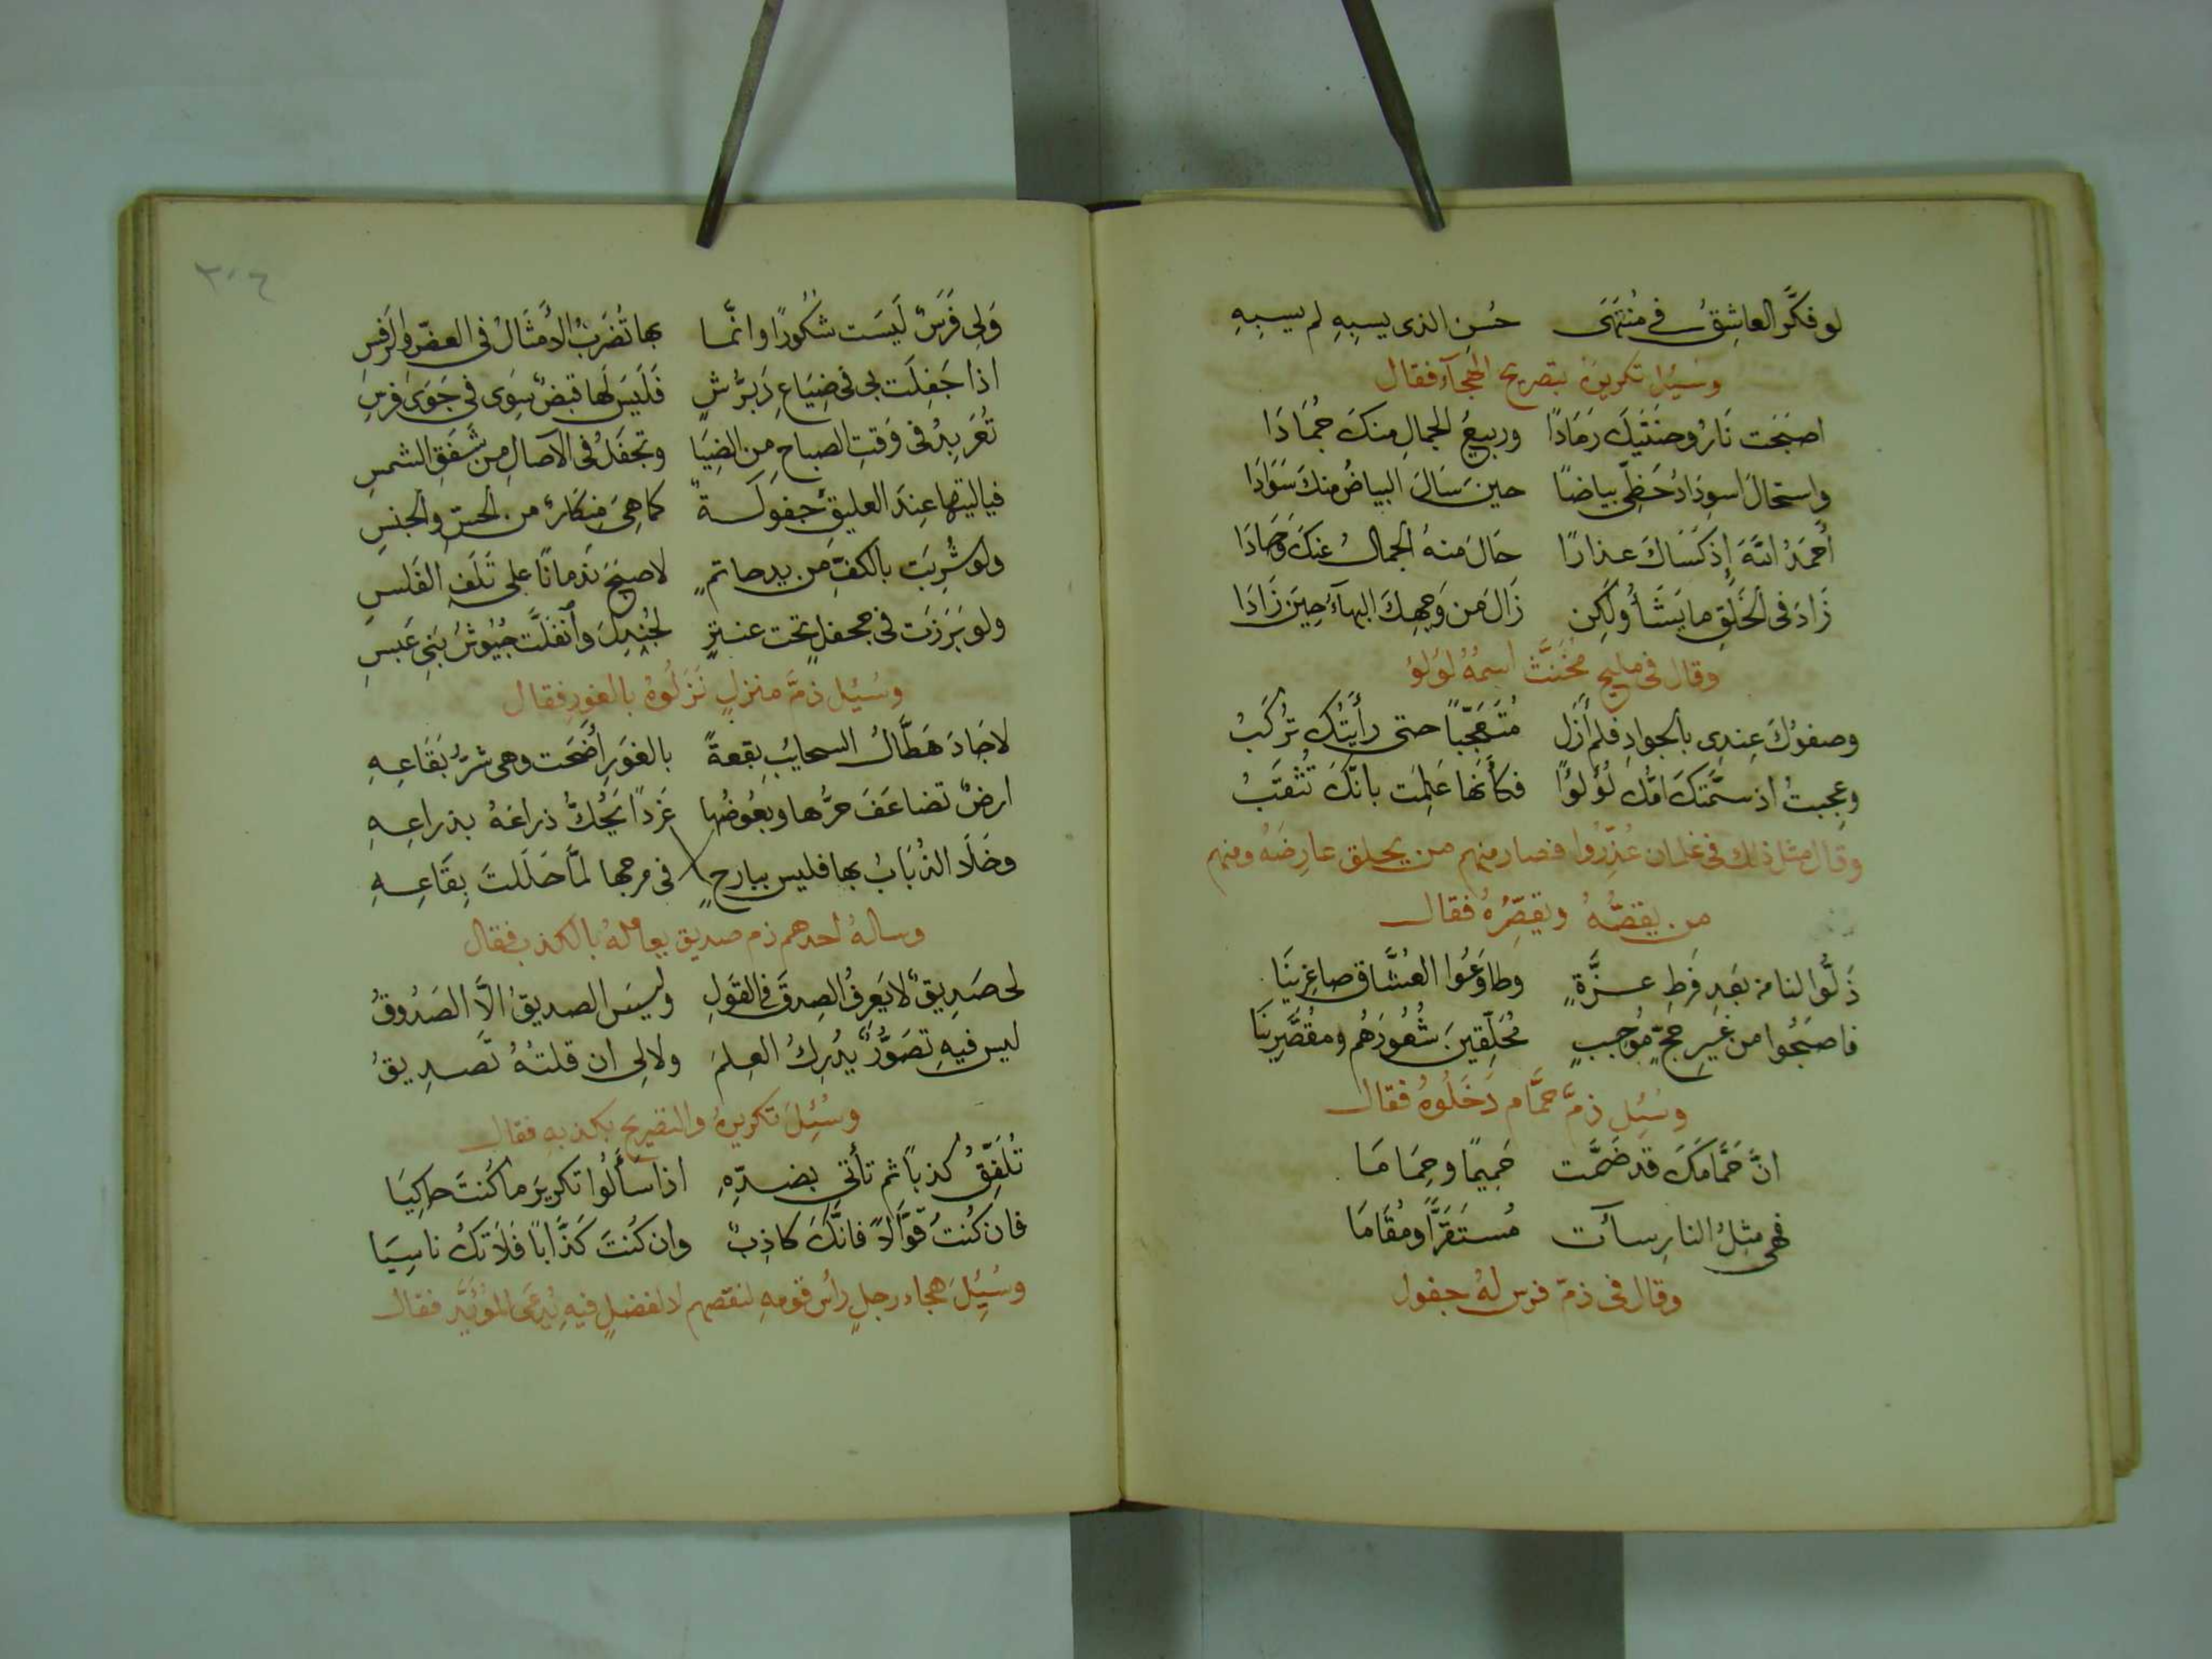 لو فكَّر العاشِقُ في مُنتَهَى حُسنِ الذى يسبِهِ لم يسبِهِ
وسُئِل تكريرَهُ بتصريح الهجآء فقال
اصبَحَت نَارُ وجنَتَيكَ رَمَادًا وربيعُ الجمالِ منكَ جُمَادَا
واستحالَ اسوِدَادُ حَظِّى بياضًا حينَ سَالَ البياضُ منكَ سَوَادَا
أَحمَدُ اللّهَ إِذ كَسَاكَ عذارًا حَالَ منهُ الجمالُ عنكَ وَحَادَا
زَادَ فى الخَلقِ ما يَشَأُ ولَكِن زَالَ من وَجهِكَ البهآءُ حِينَ زَادَا
وقال فى مليح مخَنَّث اسمُهُ لوُلوُ
وصفوُكَ عِندِى بالجوادِ فلم أَزَل مُتَعَجِّبًا حتى رأيتُك تُركَبُ
وعجِبتُ اذ سمَّتكَ امُّك لُؤلُؤًا فكأَنها عَلِمَت بانَّكَ تُثقَبُ
وقال مثل ذلك فى غلمان عُذِّرُوا فصار منهم من يحلق عارِضَهُ ومنهم
من يقصُّهُ ويقصِّرُهُ فقال
ذَلُّوا لنا من بَعدِ فَرطِ عزَّةٍ وطاوَعُوا العُشَّاق صاغِرِينَا
فاصبَحُوا من غَيرِ حجٍّ مُوجبٍ مُحَلِّقينَ شُعُورَهُم ومقُصِّرِينَا
وسُئِل ذمَّ حمَّام دَخَلُوهُ فقال
انَّ حَمَّامَكَ قد ضَمَّت حَمِيمًا وحِمَامَا
فهى مثِلُ النارِ سآت مُستَقَرًّا ومُقَامَا
وقال فى ذمّ فرس لهُ جفول
٣٠٦
وَلِى فَرَسٌ لَيسَت شكُورًا وانَّما بها تُضرَبُ الأَمثَالُ فى العضّ والرَفسِ
اذا جَفِلَت بى فى ضِيَاعِ دَبَرُّشٍ فَلَيسَ لَها قبَضٌ سِوَى فى جَوَى فرسِ
تُعَربِدُ فى وَقتِ الصباحِ مِن الضِيَا وتجفَلُ فى الآصالِ مِن شَفَقِ الشمسِ
فياليتها عِندَ العليقِ جفَولَةٌ كما هِىَ مِنكَارٌ من الحسّ والجنسِ
ولو شُرِبَت بالكفِّ من يد حاتمٍ لاصبَحَ نَدمانًا على تَلَفِ الفَلسِ
ولو بَرَزَت فى جحفلٍ تحت عنترٍ لجُندِلَ وأنفَلَّت جُيُوشُ بَنى عَبسِ
وسُئِل ذمَّ منزلٍ نَزَلُوهُ بالغورِ فقال
لاجَادَ هَطَّالُ السحايبِ بقعةً بالغَورِ أَضحَت وهى شرُّ بقَاعِهِ
ارضٌ تضاعَفَ حرُّها وبعُوضُها غَرِدًا يَحُكُّ ذراعَهُ بذراعِهِ
وخَلَا الذُبَابُ بها فليس ببارحٍ فى مرجها لمَّا حَلَلتَ بِقَاعِهِ
وسالهُ احدهم ذم صديق يعاملهُ بالكذب فقال
لى صَدِيقٌ لا يَعرِفُ الصِدقَ فى القَولِ وليسَ الصديقُ الَّا الصَدُوقُ
ليس فيهِ تصَوُّرٌ يُدرِكُ العِلمَ ولا لى ان قلتهُ تَصدِيقُ
وسُئِلَ تكريرهُ والتصريح بكذبهِ فقال
تُلَفِّقُ كذبًا ثم تأتى بضدِّهِ اذا سَأَلُوا تكريرَ ما كُنتَ حاكِيَا
فان كُنتَ قَوَّالًا فانَّكَ كاذِبٌ وان كُنتَ كَذَّابًا فَلَا تَكُ ناسِيَا
وسُئِلَ هجاء رجلٍ رأس قومهِ لنقصهم لا لفضلٍ فيهِ يُدعَى المؤيَّد فقال